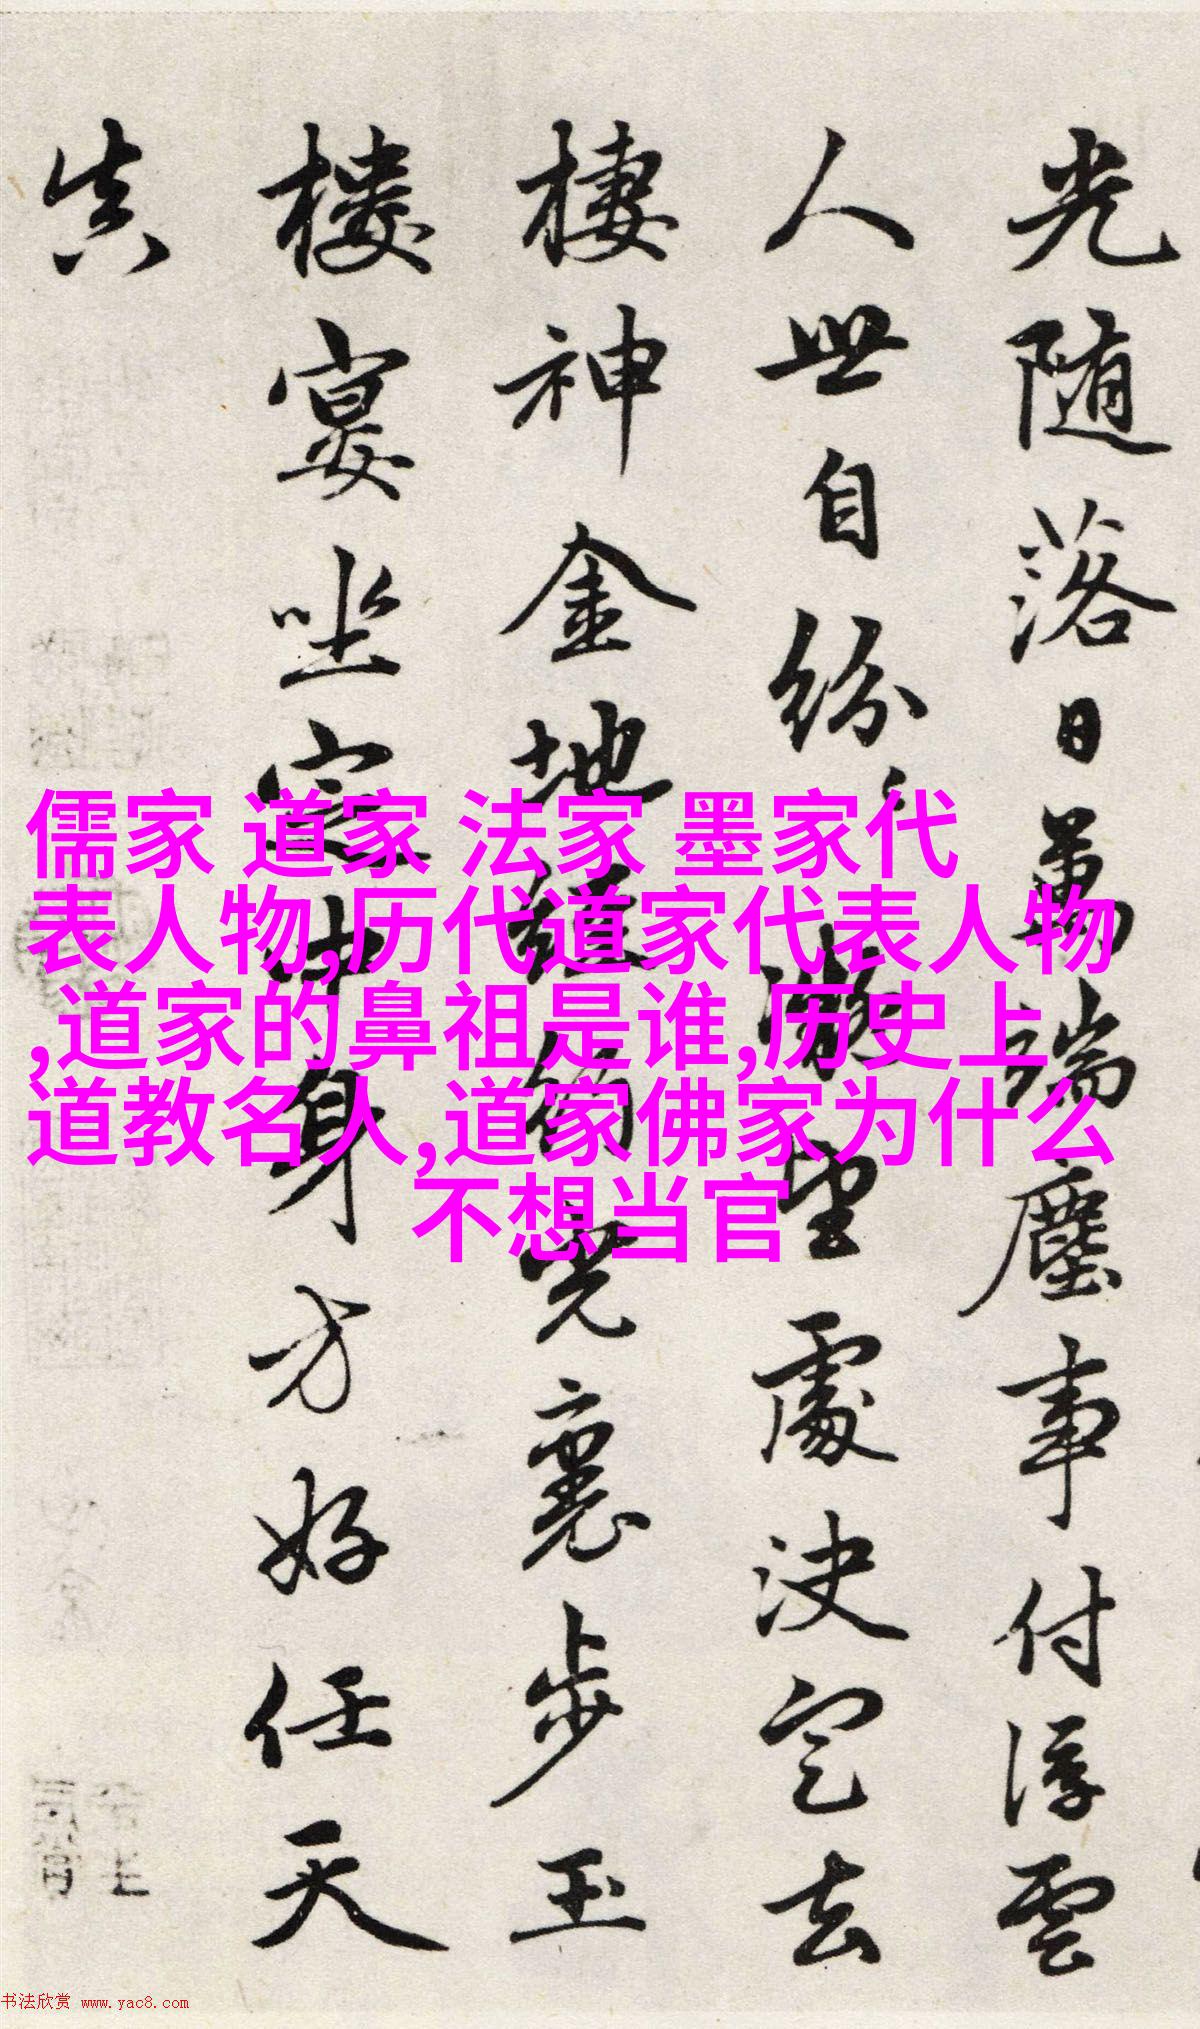 光随落日萬端塵事付浮雲
人世自紛〻凝望處决定去
棲神金地裏步玉
楼宴坐定中身方好任天
真
儒家 道家 法家 墨家代
表人物,历代道家代表人物
,道家的鼻祖是谁,历史上
道教名人,道家佛家为什么
不想当官
书法欣赏 www.yac8.com